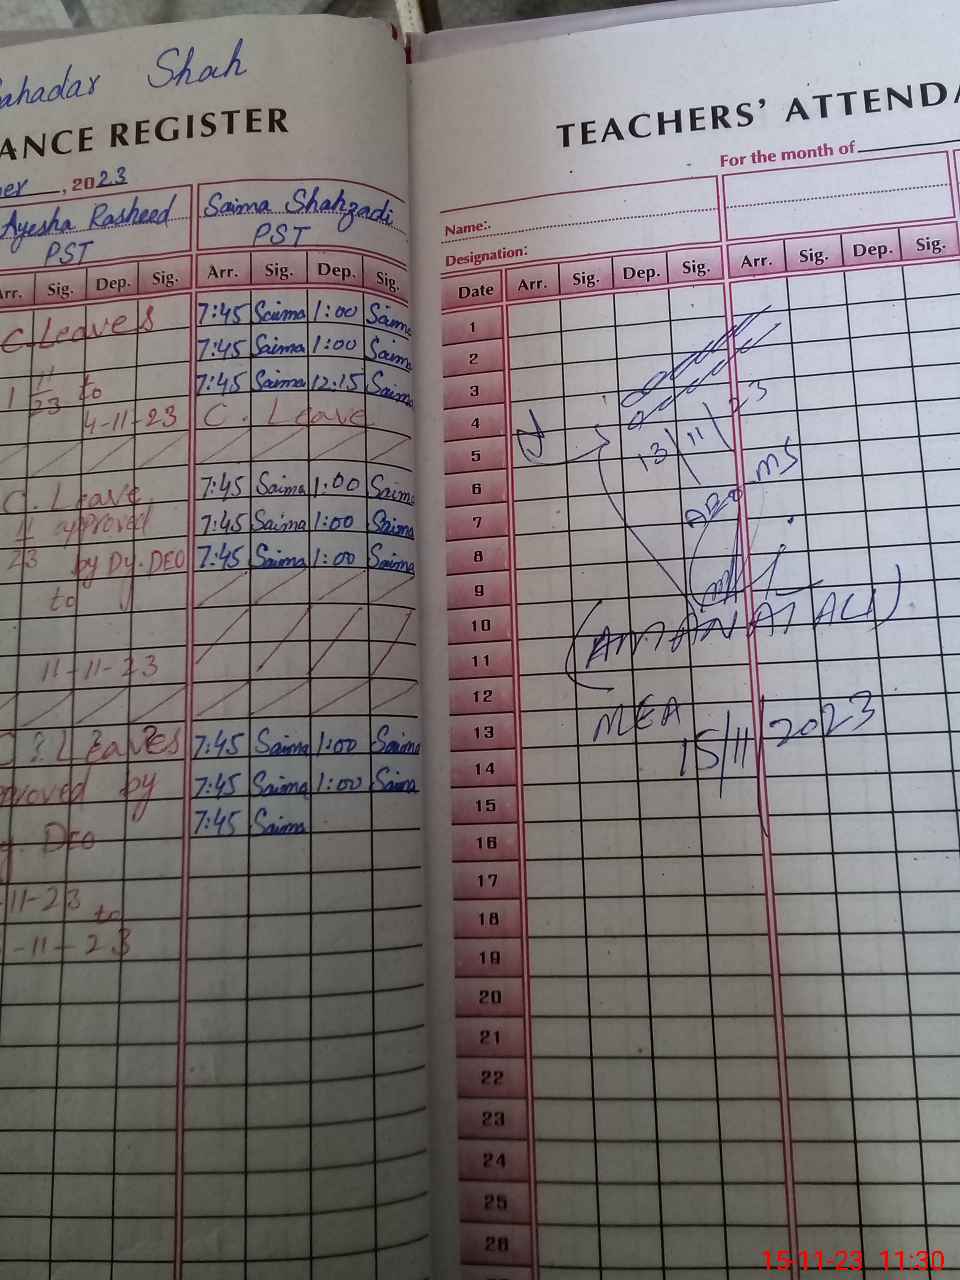 Bahadar Shah
ANCE REGISTER
ber , 2023
Ayesha Rasheed
PST
Saima Shahzadi
PST
Arr. Sig. Dep. Sig. Arr. Sig. Dep. Sig.
C. Leaves 7:45 Saima 1:00 Saima
7:45 Saima 1:00 Saima
1 11 23 to 7:45 Saima 12:15 Saima
4-11-23 C. Leave
C. Leave 7:45 Saima 1:00 Saima
11 approved 7:45 Saima 1:00 Saima
23 by Dy. DEO 7:45 Saima 1:00 Saima
to
11-11-23
Leaves 7:45 Saima 1:00 Saima
proved by 7:45 Saima 1:00 Saima
DEO 7:45 Saima
-11-23 to
-11-23
TEACHERS' ATTENDA
For the month of
Name:
Designation:
Date Arr. Sig. Dep. Sig. Arr. Sig. Dep. Sig.
1
2
3
4
5
6
7
8
9
10
11
12
13
14
15
16
17
18
19
20
21
22
23
24
25
26
13/11/23
AEO MS
(AMANAT ALI)
MEA
15/11/2023
15-11-23 11:30